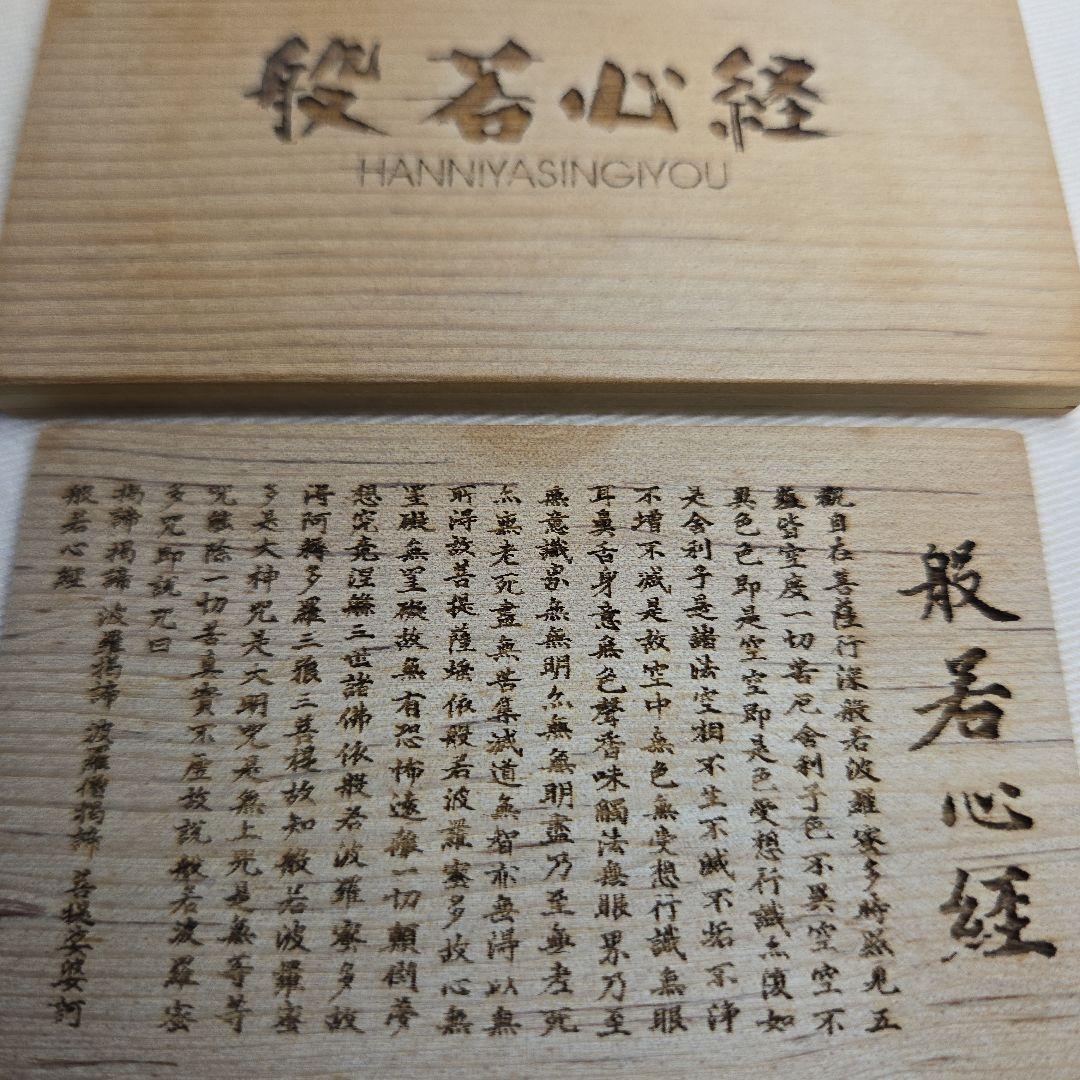 般若心経
HANNIYASINGIYOU
般若心経
觀自在菩薩行深般若波羅蜜多時照見五
蘊皆空度一切苦厄舎利子色不異空空不
異色色即是空空即是色受想行識亦復如
是舎利子是諸法空相不生不滅不垢不淨
不増不減是故空中無色無受想行識無眼
耳鼻舌身意無色聲香味觸法無眼界乃至
無意識界無無明亦無無明盡乃至無老死
亦無老死盡無苦集滅道無智亦無得以無
所得故菩提薩埵依般若波羅蜜多故心無
罣礙無罣礙故無有恐怖遠離一切顛倒夢
想究竟涅槃三世諸佛依般若波羅蜜多故
得阿耨多羅三藐三菩提故知般若波羅蜜
多是大神咒是大明咒是無上咒是無等等
咒能除一切苦真實不虚故説般若波羅蜜
多咒即説咒曰
揭諦揭諦 波羅揭諦 波羅僧揭諦 菩提娑婆訶
般若心經